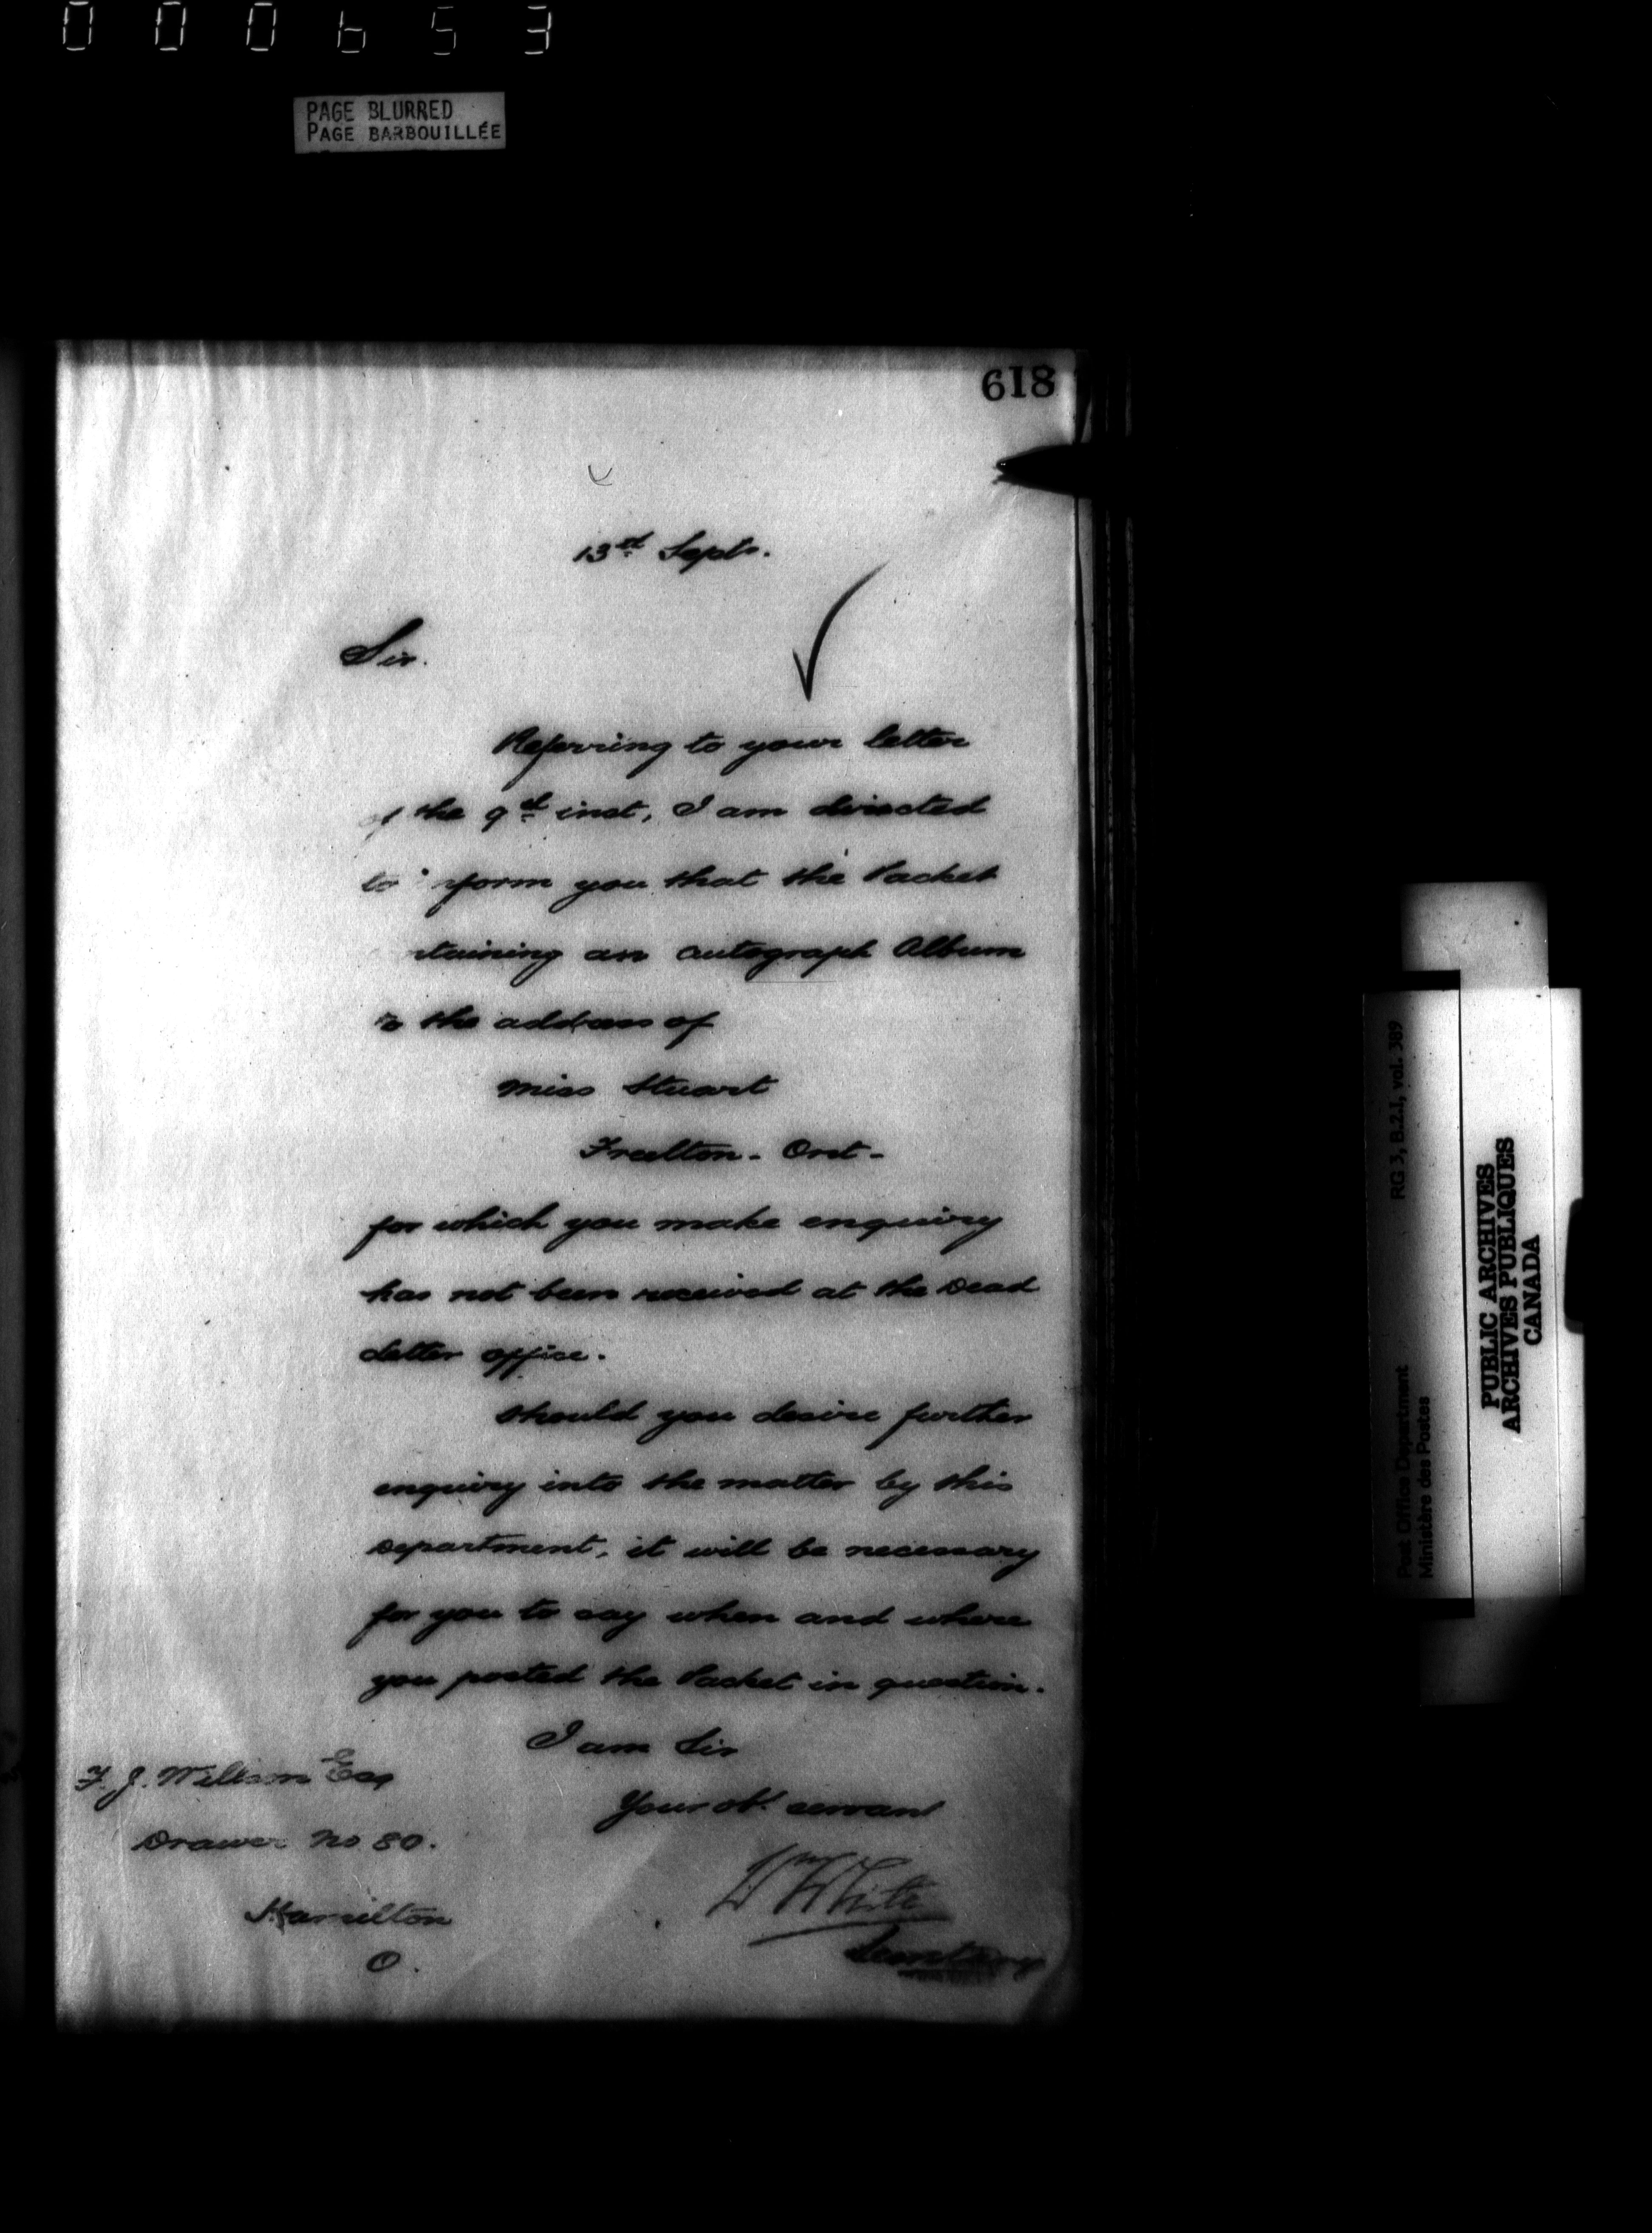 000653
PAGE BLURRED
PAGE BARBOUILLÉE
618
13th Sept.
Sir.
Referring to your letter
of the 9th inst, I am directed
to inform you that the Packet
ntaining an autograph Album
to the address of
Miss Stuart
Freelton - Ont -
for which you make enquiry
has not been received at the Dead
Letter office.
Should you desire further
enquiry into the matter by this
Department, it will be necessary
for you to say when and where
you posted the Packet in question.
I am Sir
Your obt. servant
Wm White
Secretary
F. J. Willson Esq
Drawer No 80.
Hamilton
O.
RG 3, B.2.1, vol. 389
Post Office Department
Ministère des Postes
PUBLIC ARCHIVES
ARCHIVES PUBLIQUES
CANADA